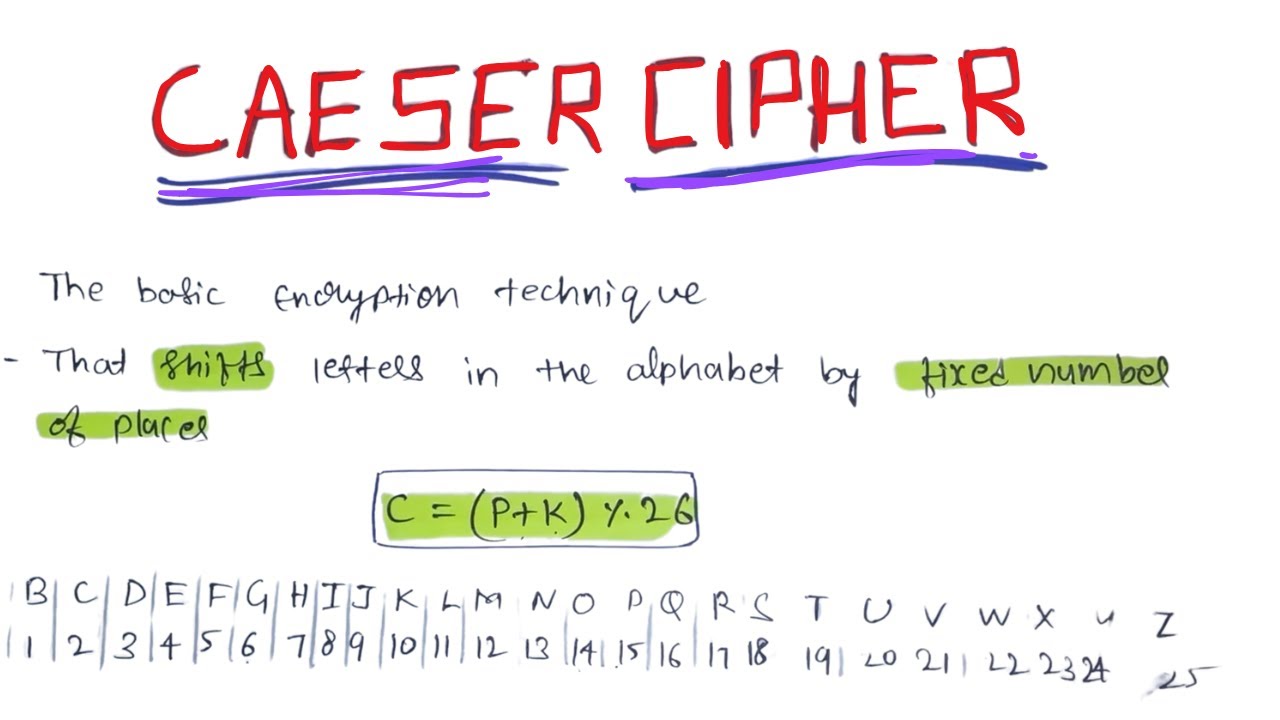 CAESER CIPHER
The basic Encryption technique
- That shifts letters in the alphabet by fixed number
of places
C = (P+K) %. 26
B C D E F G H I J K L M N O P Q R S T U V W X Y Z
1 2 3 4 5 6 7 8 9 10 11 12 13 14 15 16 17 18 19 20 21 22 23 24 25